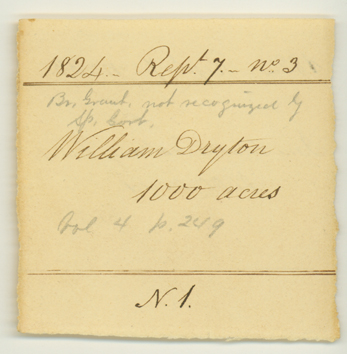 1824.- Rept. 7.- no 3
Br. Grant. not recognized by
Sp. Govt.
William Dryton
1000 acres
Vol 4 p. 249
N. 1.